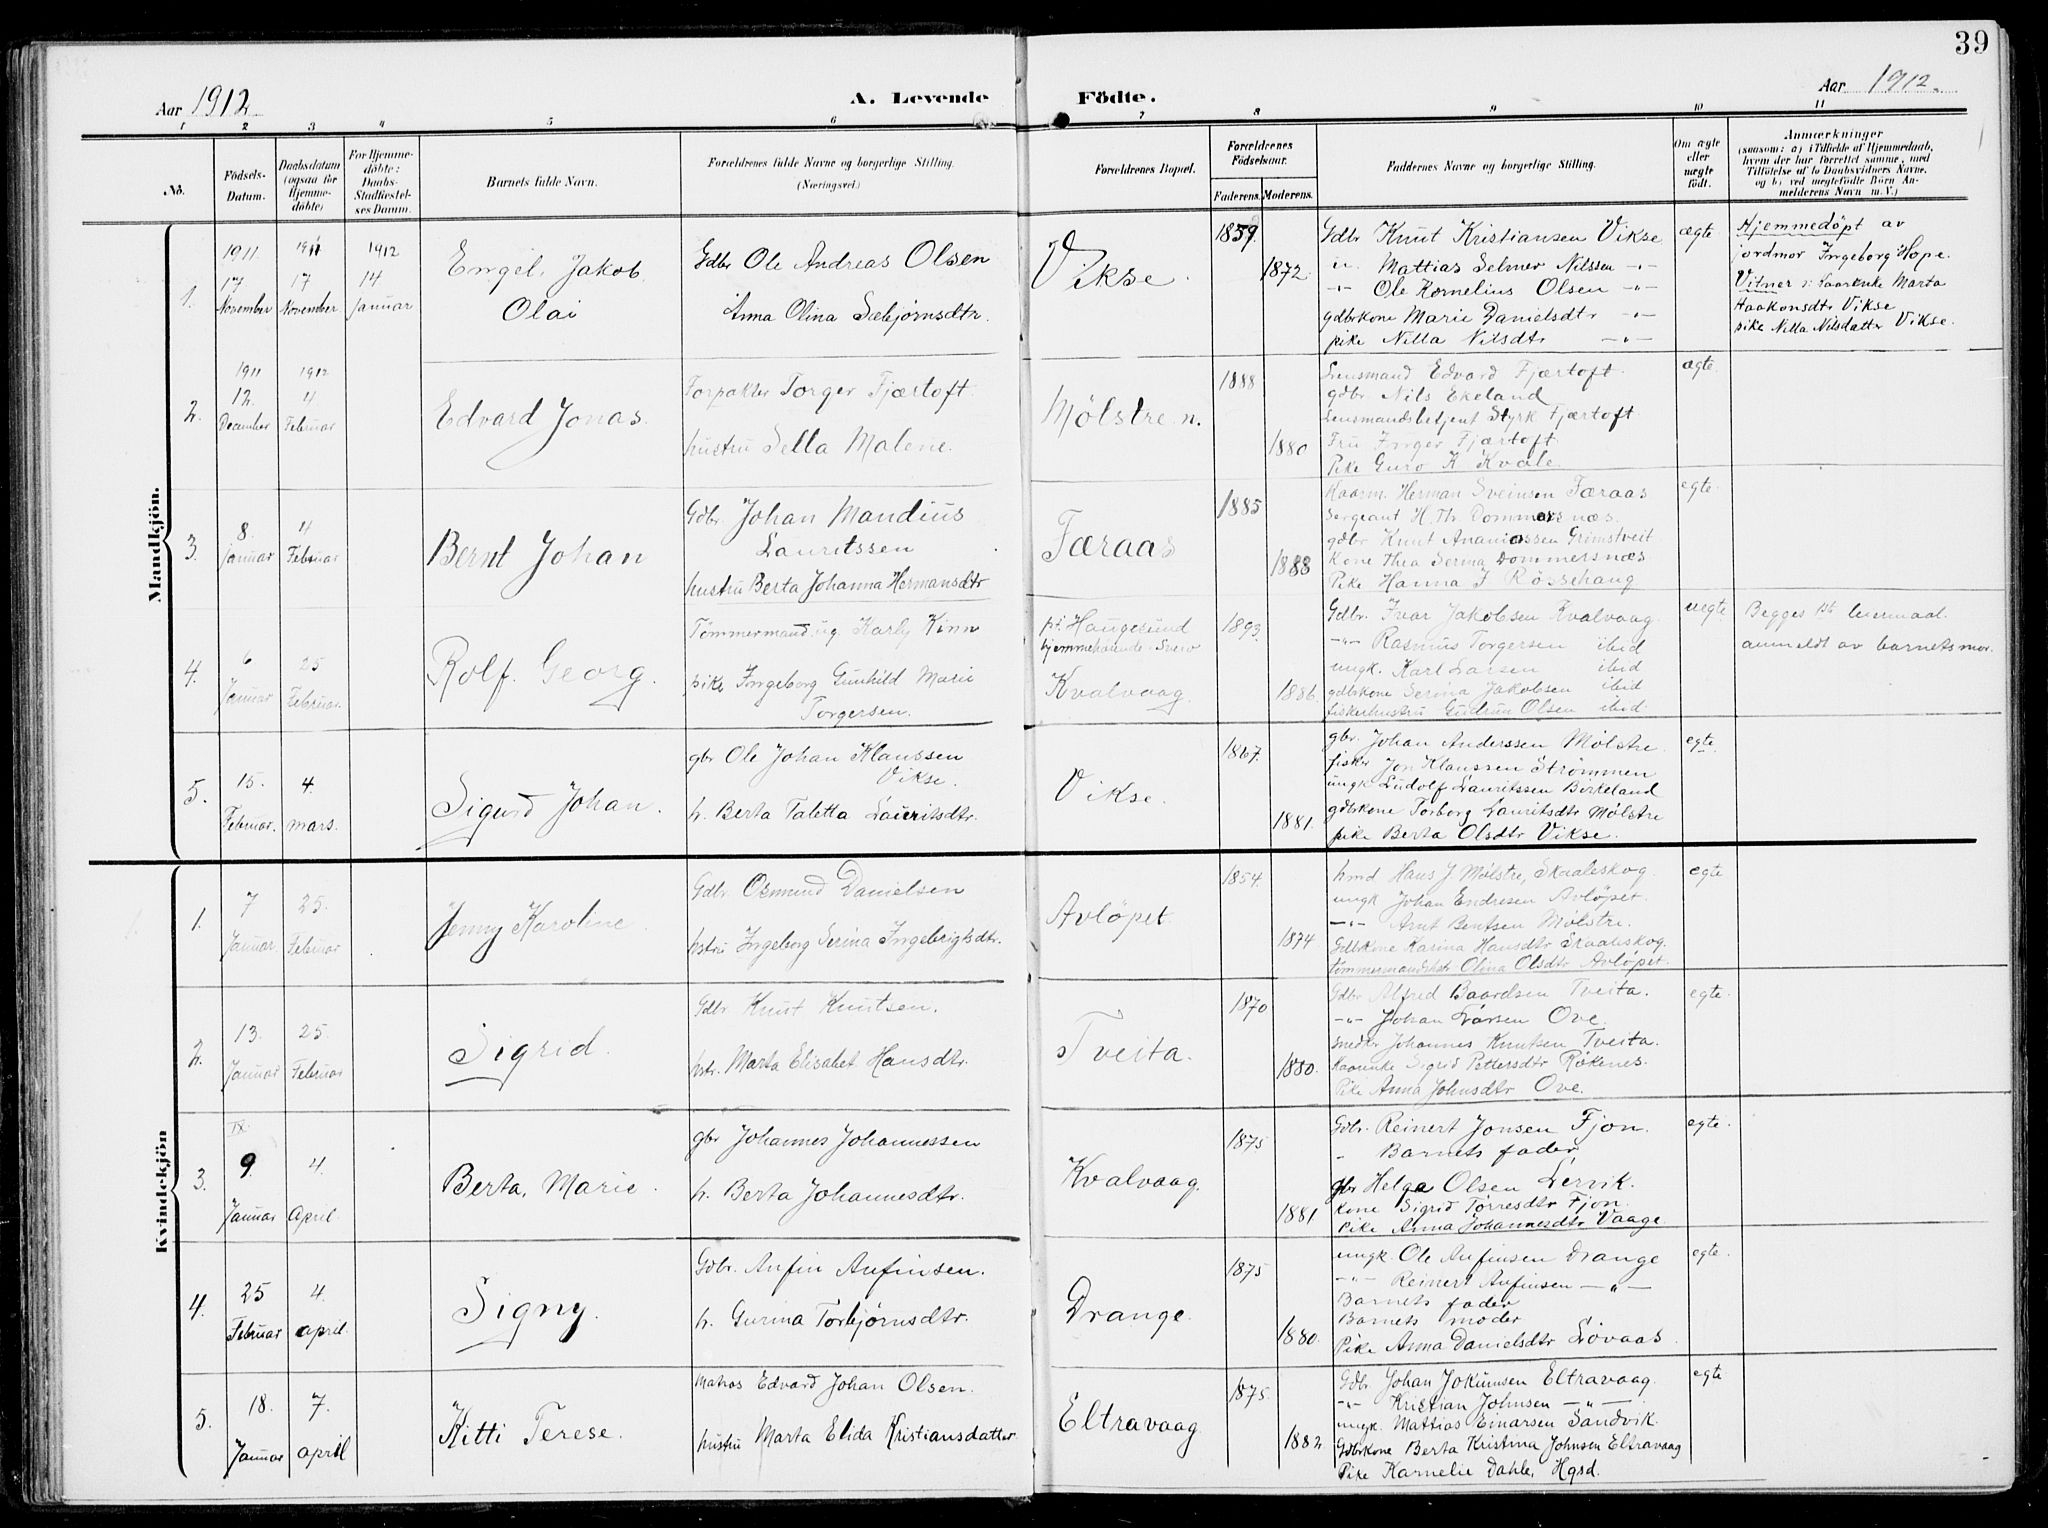 39
Aar 1912.
A. Levende Födte.
Aar 1912.
1 2 3 4 5 6 7 8 9 10 11
No.
Födsels-Datum.
Daabsdatum (ogsaa for Hjemmedöbte)
For Hjemmedöbte: Daabs-Stadfæstelses Datum.
Barnets fulde Navn.
Forældrenes fulde Navne og borgerlige Stilling.
(Næringsvei.)
Forældrenes Bopæl.
Forældrenes Födselsaar.
Faderens. Moderens.
Faddernes Navne og borgerlige Stilling.
Om ægte eller uægte födt.
Anmærkninger
(saasom: a) i Tilfælde af Hjemmedaab, hvem der har forrettet samme, med Tilföielse af to Daabsvidners Navne, og b) ved uægtefödte Börn Anmelderens Navn m. V.)
Mandkjön.
1.
1911 17 November
1911 17 November
1912 14 Januar
Engel Jakob
Olai
Gdbr Ole Andreas Olsen
Anna Olina Sæbjørnsdtr.
Vikse.
1859
1872.
Gdbr Knut Kristiansen Vikse
" Mattias Selmer Nilssen -"-
-"- Ole Kornelius Olsen -"-
gdbrkone Marie Danielsdtr -"-
pike Nilla Nilsdtr -"-
ægte
Hjemmedøpt av
jordmor Ingeborg Hope.
Vitner: Kaarenke Marta
Haakonsdtr Vikse
pike Nilla Nilsdatter Vikse.
2.
1911 12. December
1912 4 Februar
Edvard Jonas.
Forpakter Torger Fjærtoft.
hustru Sella Malene.
Mölstre n.
1888
1880
Lensmand Edvard Fjærtoft.
gdbr. Nils Ekeland
Lensmandsbetjent Styrk Fjærtoft.
Fru Inger Fjærtoft.
Pike Guro K. Kvale.
ægte
3.
8. Januar
4 Februar
Bernt Johan
Gdbr Johan Mandius
Lauritssen
hustru Berta Johanna Hermansdtr
Færaas
1885
1888
Kaarm. Herman Sveinsen Færaas
Sergeant H. Th. Dommersnæs.
gdbr Knut Ananiassen Grimstveit
Kone Thea Serina Dommersnæs
Pike Hanna J Rössehaug
egte
4.
6 Januar
25 Februar.
Rolf Georg.
Tömmermand ug. Karly Kinn
pike Ingeborg Gunhild Marie
Torgersen.
pt. Haugesund
hjemmehørende i Sveio
Kvalvaag
1893.
1886.
Gdbr. Ivar Jakobsen Kvalvaag
-"- Rasmus Torgersen ibid
ungk. Karl Larsen ibid
gdbkone Serina Jakobsen ibid
fiskerhustru Gudrun Olsen ibid
uegte
Begges 1ste leiermaal.
anmeldt av barnets mor.
5.
15. Februar.
4. mars.
Sigurd Johan.
gbr Ole Johan Klaussen
Vikse.
h. Berta Taletta Lauritsdtr.
Vikse.
1867.
1881.
gbr. Johan Anderssen Mølstre.
fisker Jon Klaussen Strömmen
ungk Ludolf Lauritssen Birkeland
gdbkone Torborg Lauritsdtr Mölstre
pike Berta Olsdtr Vikse.
egte
Kvindekjön
1.
7 Januar.
25. Februar
Jenny Karoline.
Gdbr. Osmund Danielsen
hstru Ingeborg Serina Ingebrigtsdtr.
Avlöpet
1854.
1874
hmd Hans J Mölstre, Skaaleskog.
ungk Johan Endresen Avlöpet.
-"- Arnt Bentsen Mölstre.
Gdbrkone Karina Hansdtr Skaaleskog.
tömmermandshstr Olina Olsdtr Avlöpet.
egte
2.
13. Januar
25. Februar
Sigrid.
Gdbr. Knut Knutsen.
hstr. Marta Elisabet Hansdtr.
Tveita.
1870
1880.
Gdbr Alfred Baardsen Tveita.
-"- Johan Larsen Ove.
snedkr Johannes Knutsen Tveita.
Kaarenke Sigrid Pettersdtr Røkenes.
Pike Anna Johnsdtr Ove.
egte.
3.
9. Januar
4. April.
Berta Marie.
gbr Johannes Johannessen
h. Berta Johannesdtr.
Kvalvaag.
1875
1881.
Gdbr. Reinert Jonsen Fjon.
" Barnets fader
gbr Helge Olsen Lervik.
Kone Sigrid Tørresdtr Fjon.
Pike Anna Johannesdtr Vaage
egte.
4.
25 Februar
4. april.
Signy.
Gdbr. Anfin Anfinsen.
h. Gurina Torbjørnsdtr.
Drange.
1875
1880.
ungk. Ole Anfinsen Drange
-"- Reinert Anfinsen -"-
Barnets fader
Barnets moder
Pike Anna Danielsdtr Lövaas.
egte.
5.
18. Januar
7. april
Kitti Terese.
Matros Edvard Johan Olsen.
hustru Marta Elida Kristiansdatter.
Eltravaag
1875.
1882.
Gdbr. Johan Jokumsen Eltravaag.
-"- Kristian Johnsen -"-
ungk. Mattias Einarsen Sandvik.
Gdbrkone Berta Kristina Johnsen Eltravaag
Pike Karnelie Dahle, Hgsd.
egte